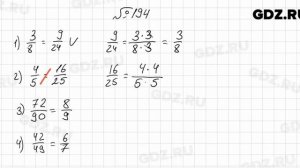 GDZ.RU
№194
1) 3/8 = 9/24 V 9/24 = 3·3/8·3 = 3/8
2) 4/5 ≠ 16/25 16/25 = 4·4/5·5
3) 72/90 = 8/9
4) 42/49 = 6/7
GDZ.RU